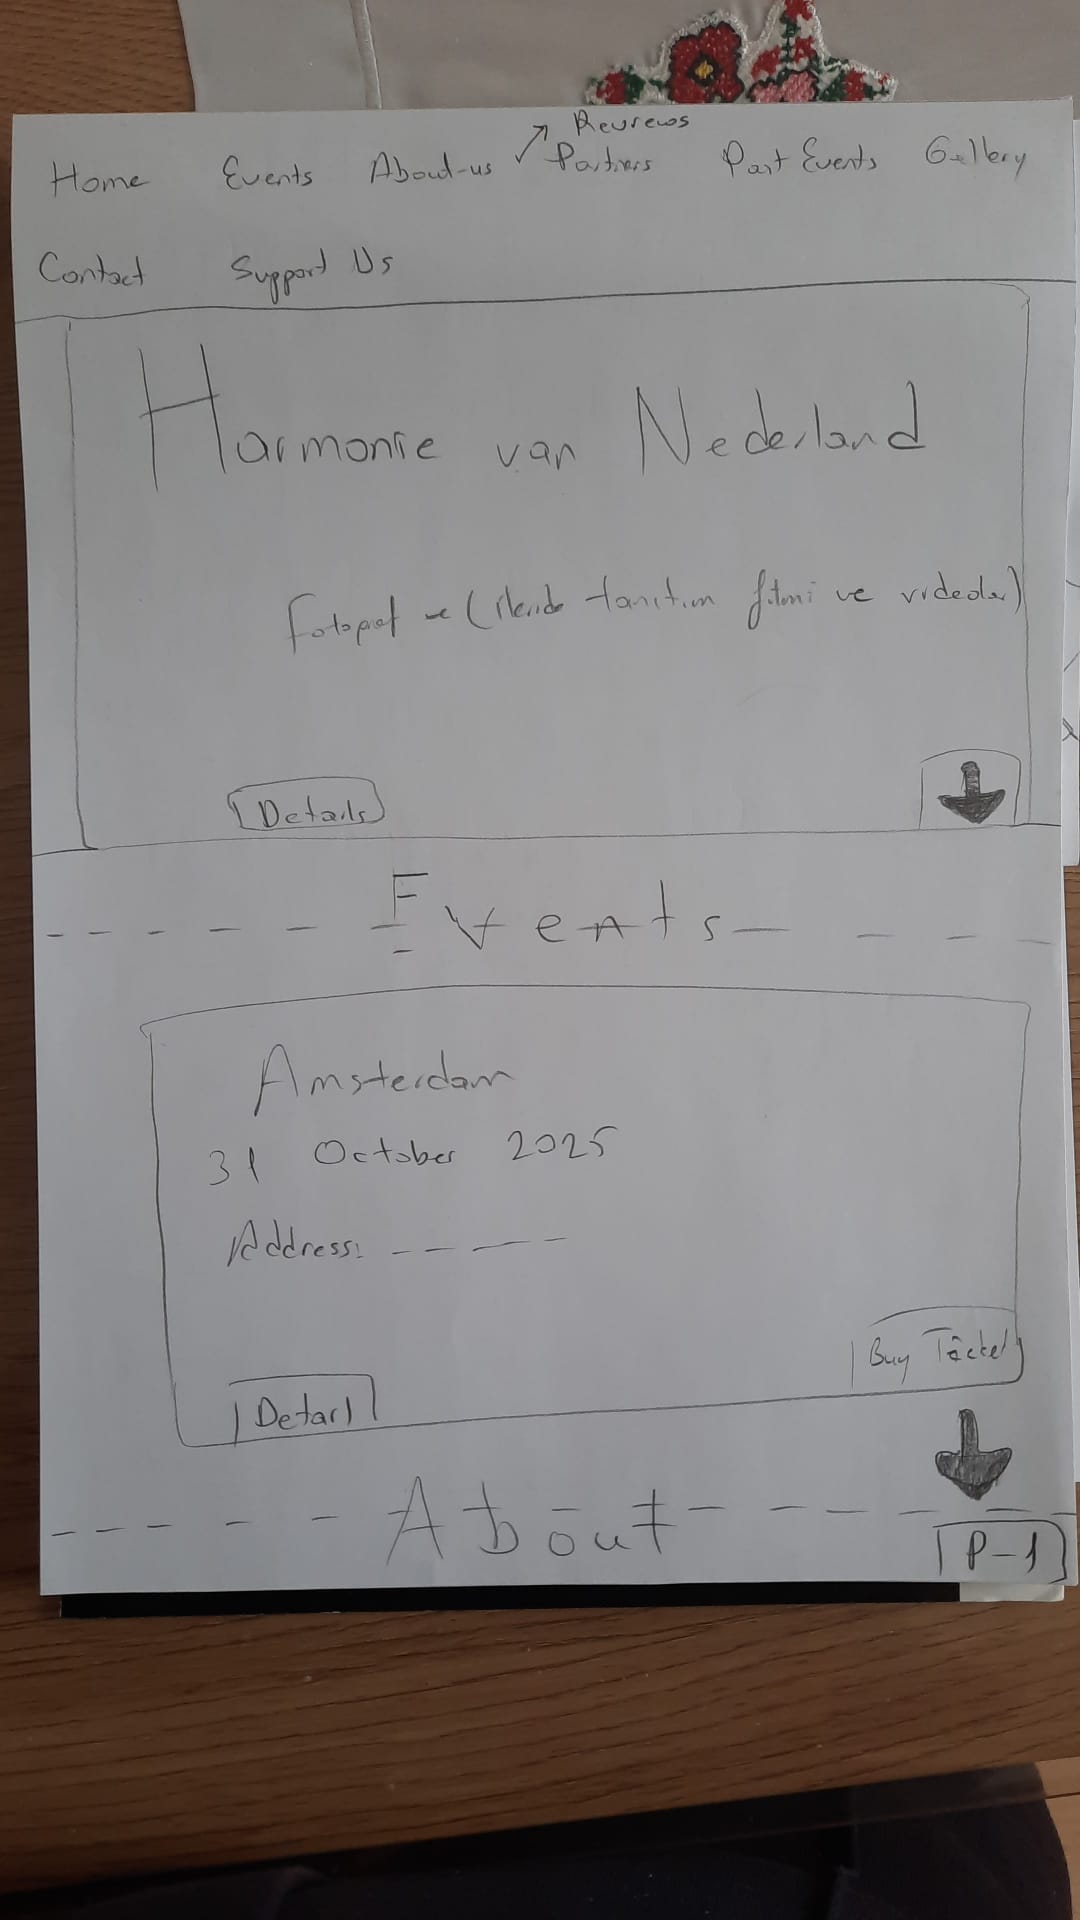 Reviews
Home Events About-us Partners Past Events Gallery
Contact Support Us
Harmonie van Nederland
Fotograf ve (ilerde tanıtım filmi ve videolar)
Details
Events
Amsterdam
31 October 2025
Address:
Buy Ticket
Detail
About
P-1